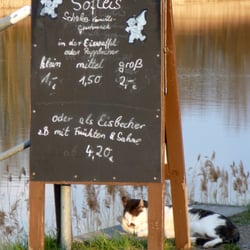 Softeis
Schoko-Vanille-
geschmack
in der Eiswaffel
oder Pappbecher
klein mittel groß
1,- 1,50 2,-€
oder als Eisbecher
zB mit Früchten & Sahne
ab 4,20€